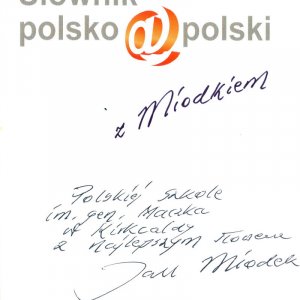 Słownik
polsko@polski
z Miodkiem
Polskiej szkole
im. gen. Maczka
w Kirkcaldy
z najlepszym słowem
Jan Miodek